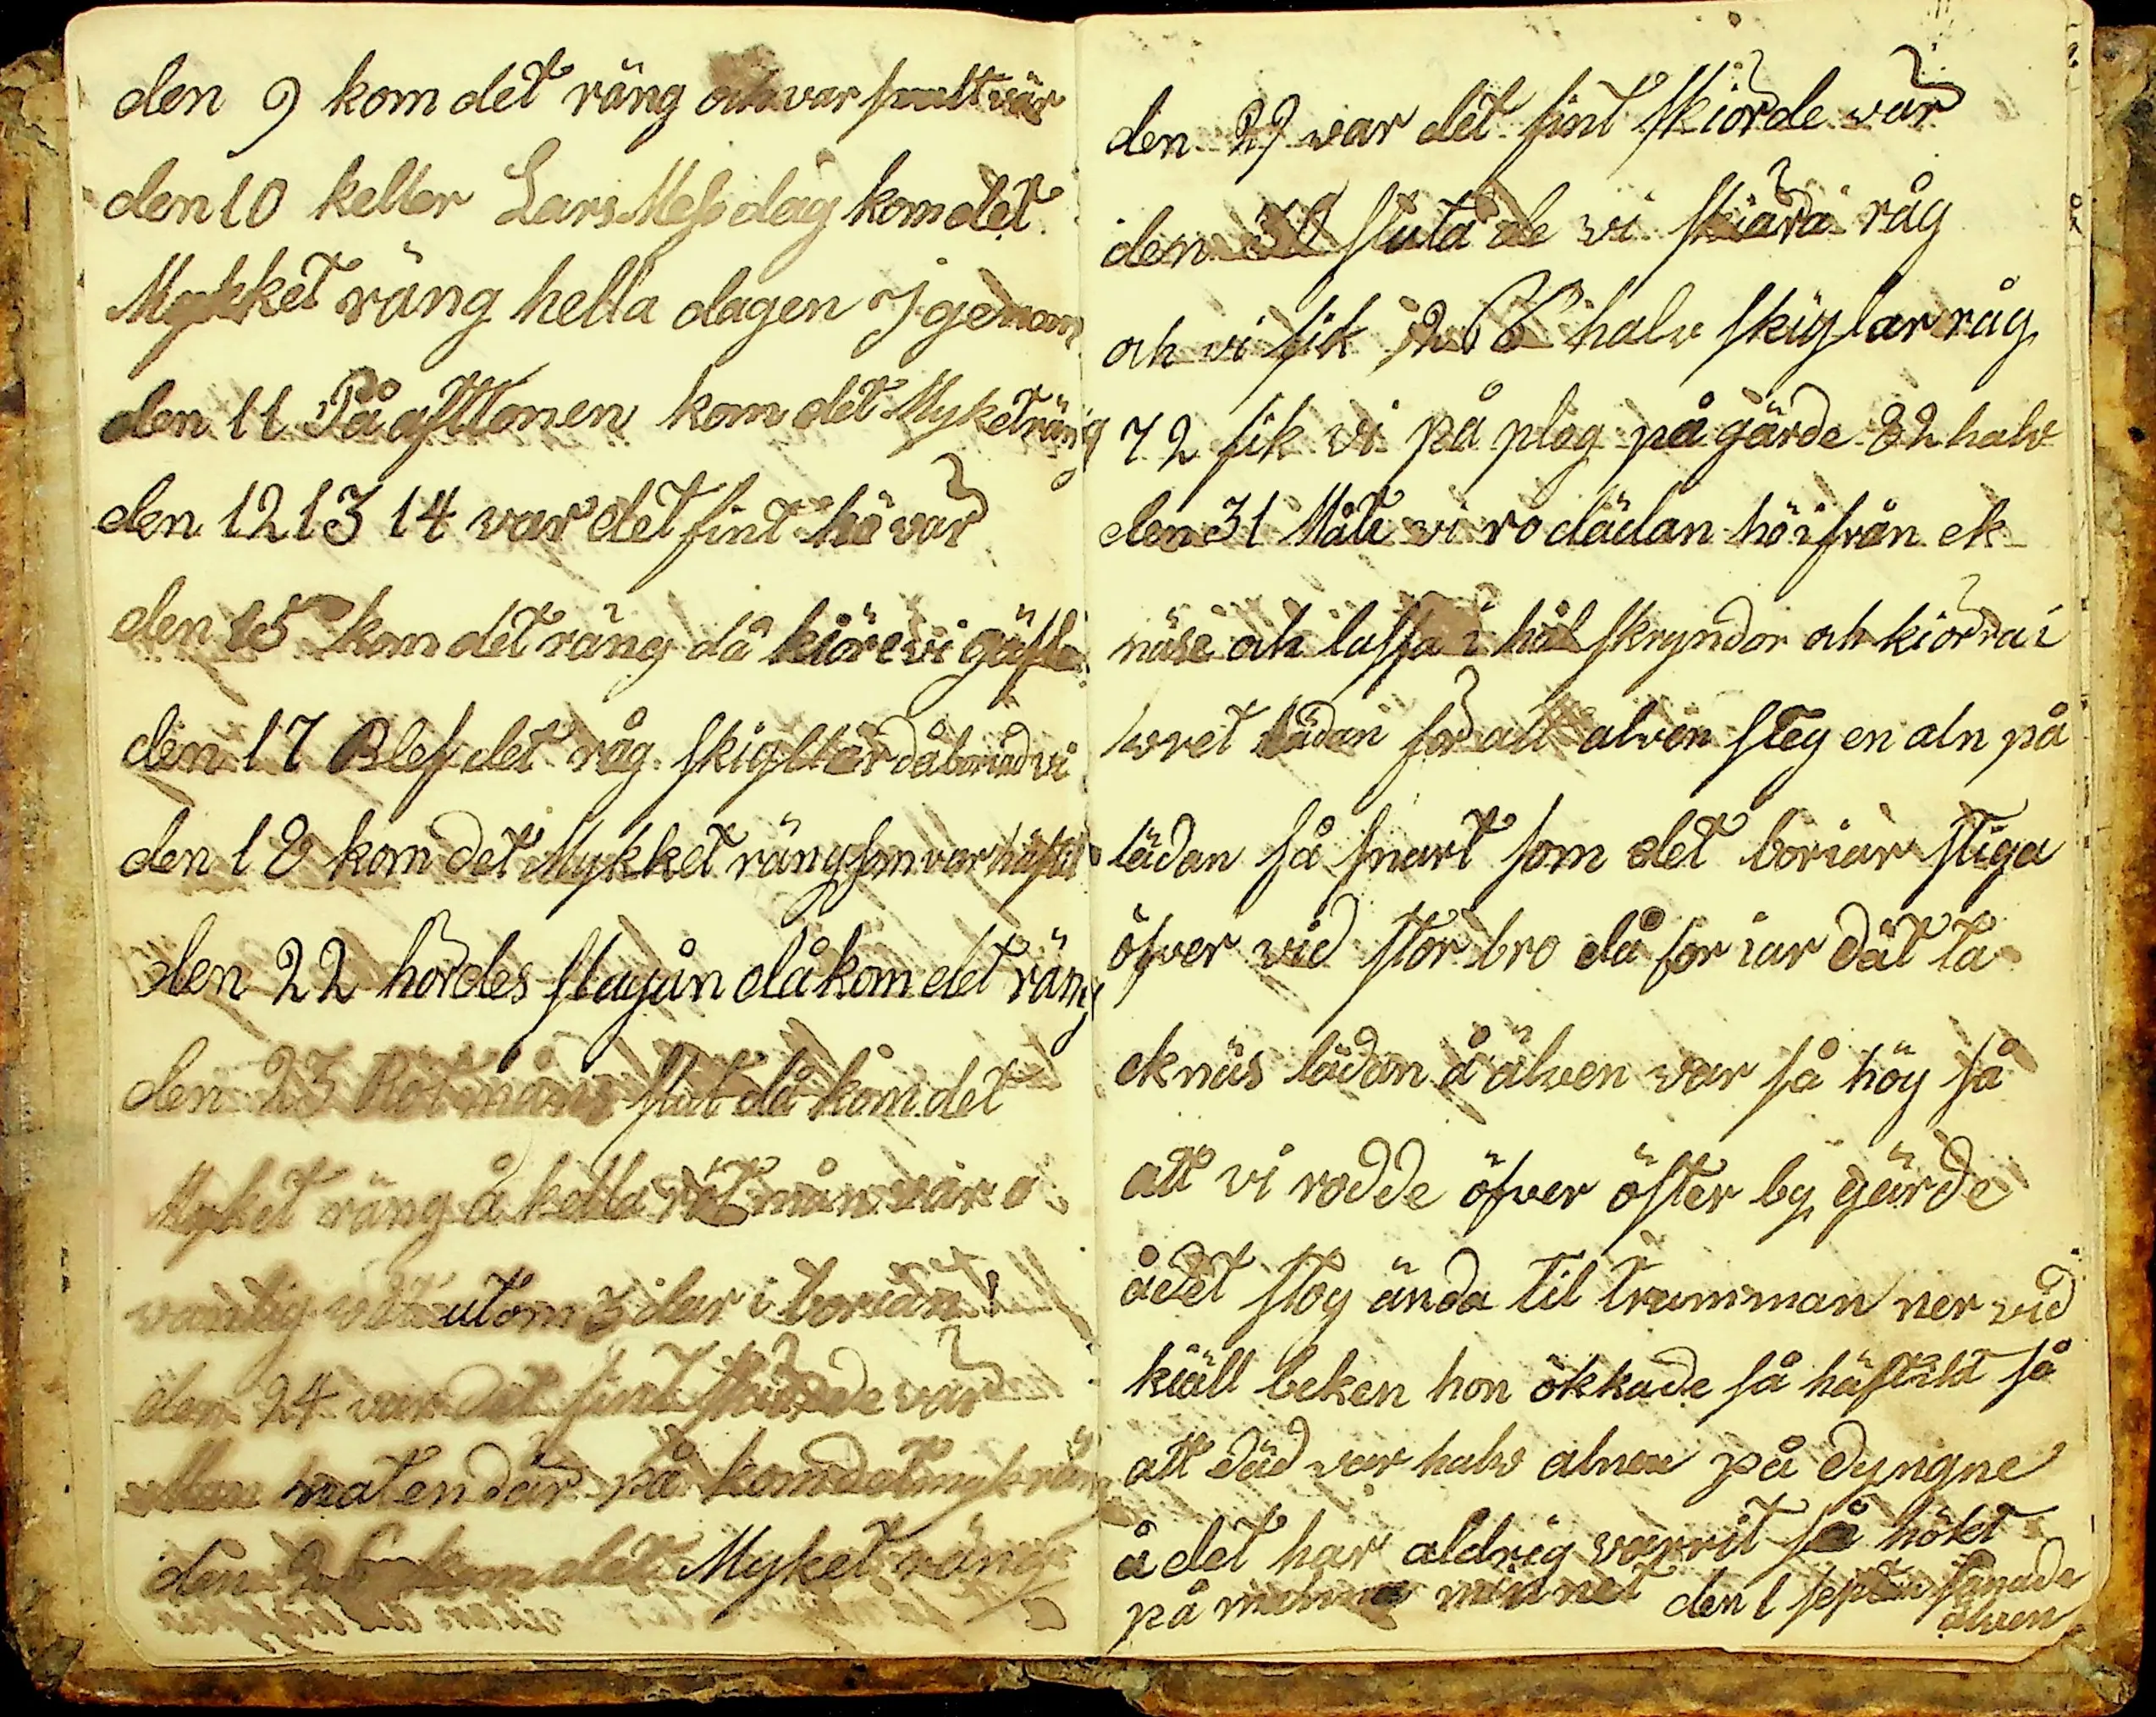 den 9 kom det räng och var fult vär
den 10 keller Lars Mess dag kom det
Mykket räng hella dagen Igenom
den 11 På afttonen kom det Myket räng
den 12 13 14 var det fint hö vär
den 15 kom det räng då kiöre vi
den 17 Blef det råg skiyllar då boriad vi
den 18 kom det Mykket räng som var
den 22 hördes slagån då kom det räng
den 23 Röt måns slut då kom det
Myket räng å hella röt mån var o
vanlig utom 3 dar i borian!
den 24 var det fint skiörde vär
Men naten där på kom det myk räng
den kom det Myket räng
den 29 var det fint skiörde vär
den 30 sluta de vi skiära råg
och vi fik halv skiylar råg
72 fik vi på plog på gärde 82 halv
den 31 Måte vi ro dädan hö ifrån ek
näse och lassa i höl skryndor och kiörra i
svret lädan för att älven steg en aln på
lädan så snart som det boriar stiga
öfver vid stor bro då for iar dät ta
eknäs lädan å älven var så hög så
att vi rodde öfver öster by gärde
å det stog ända til trumman ner vid
kiäll beken hon ökkade så häftilt så
att däd var halv alnen på dyngne
å det har aldrig varrit så hökt
på minnet den 1 septem
älven